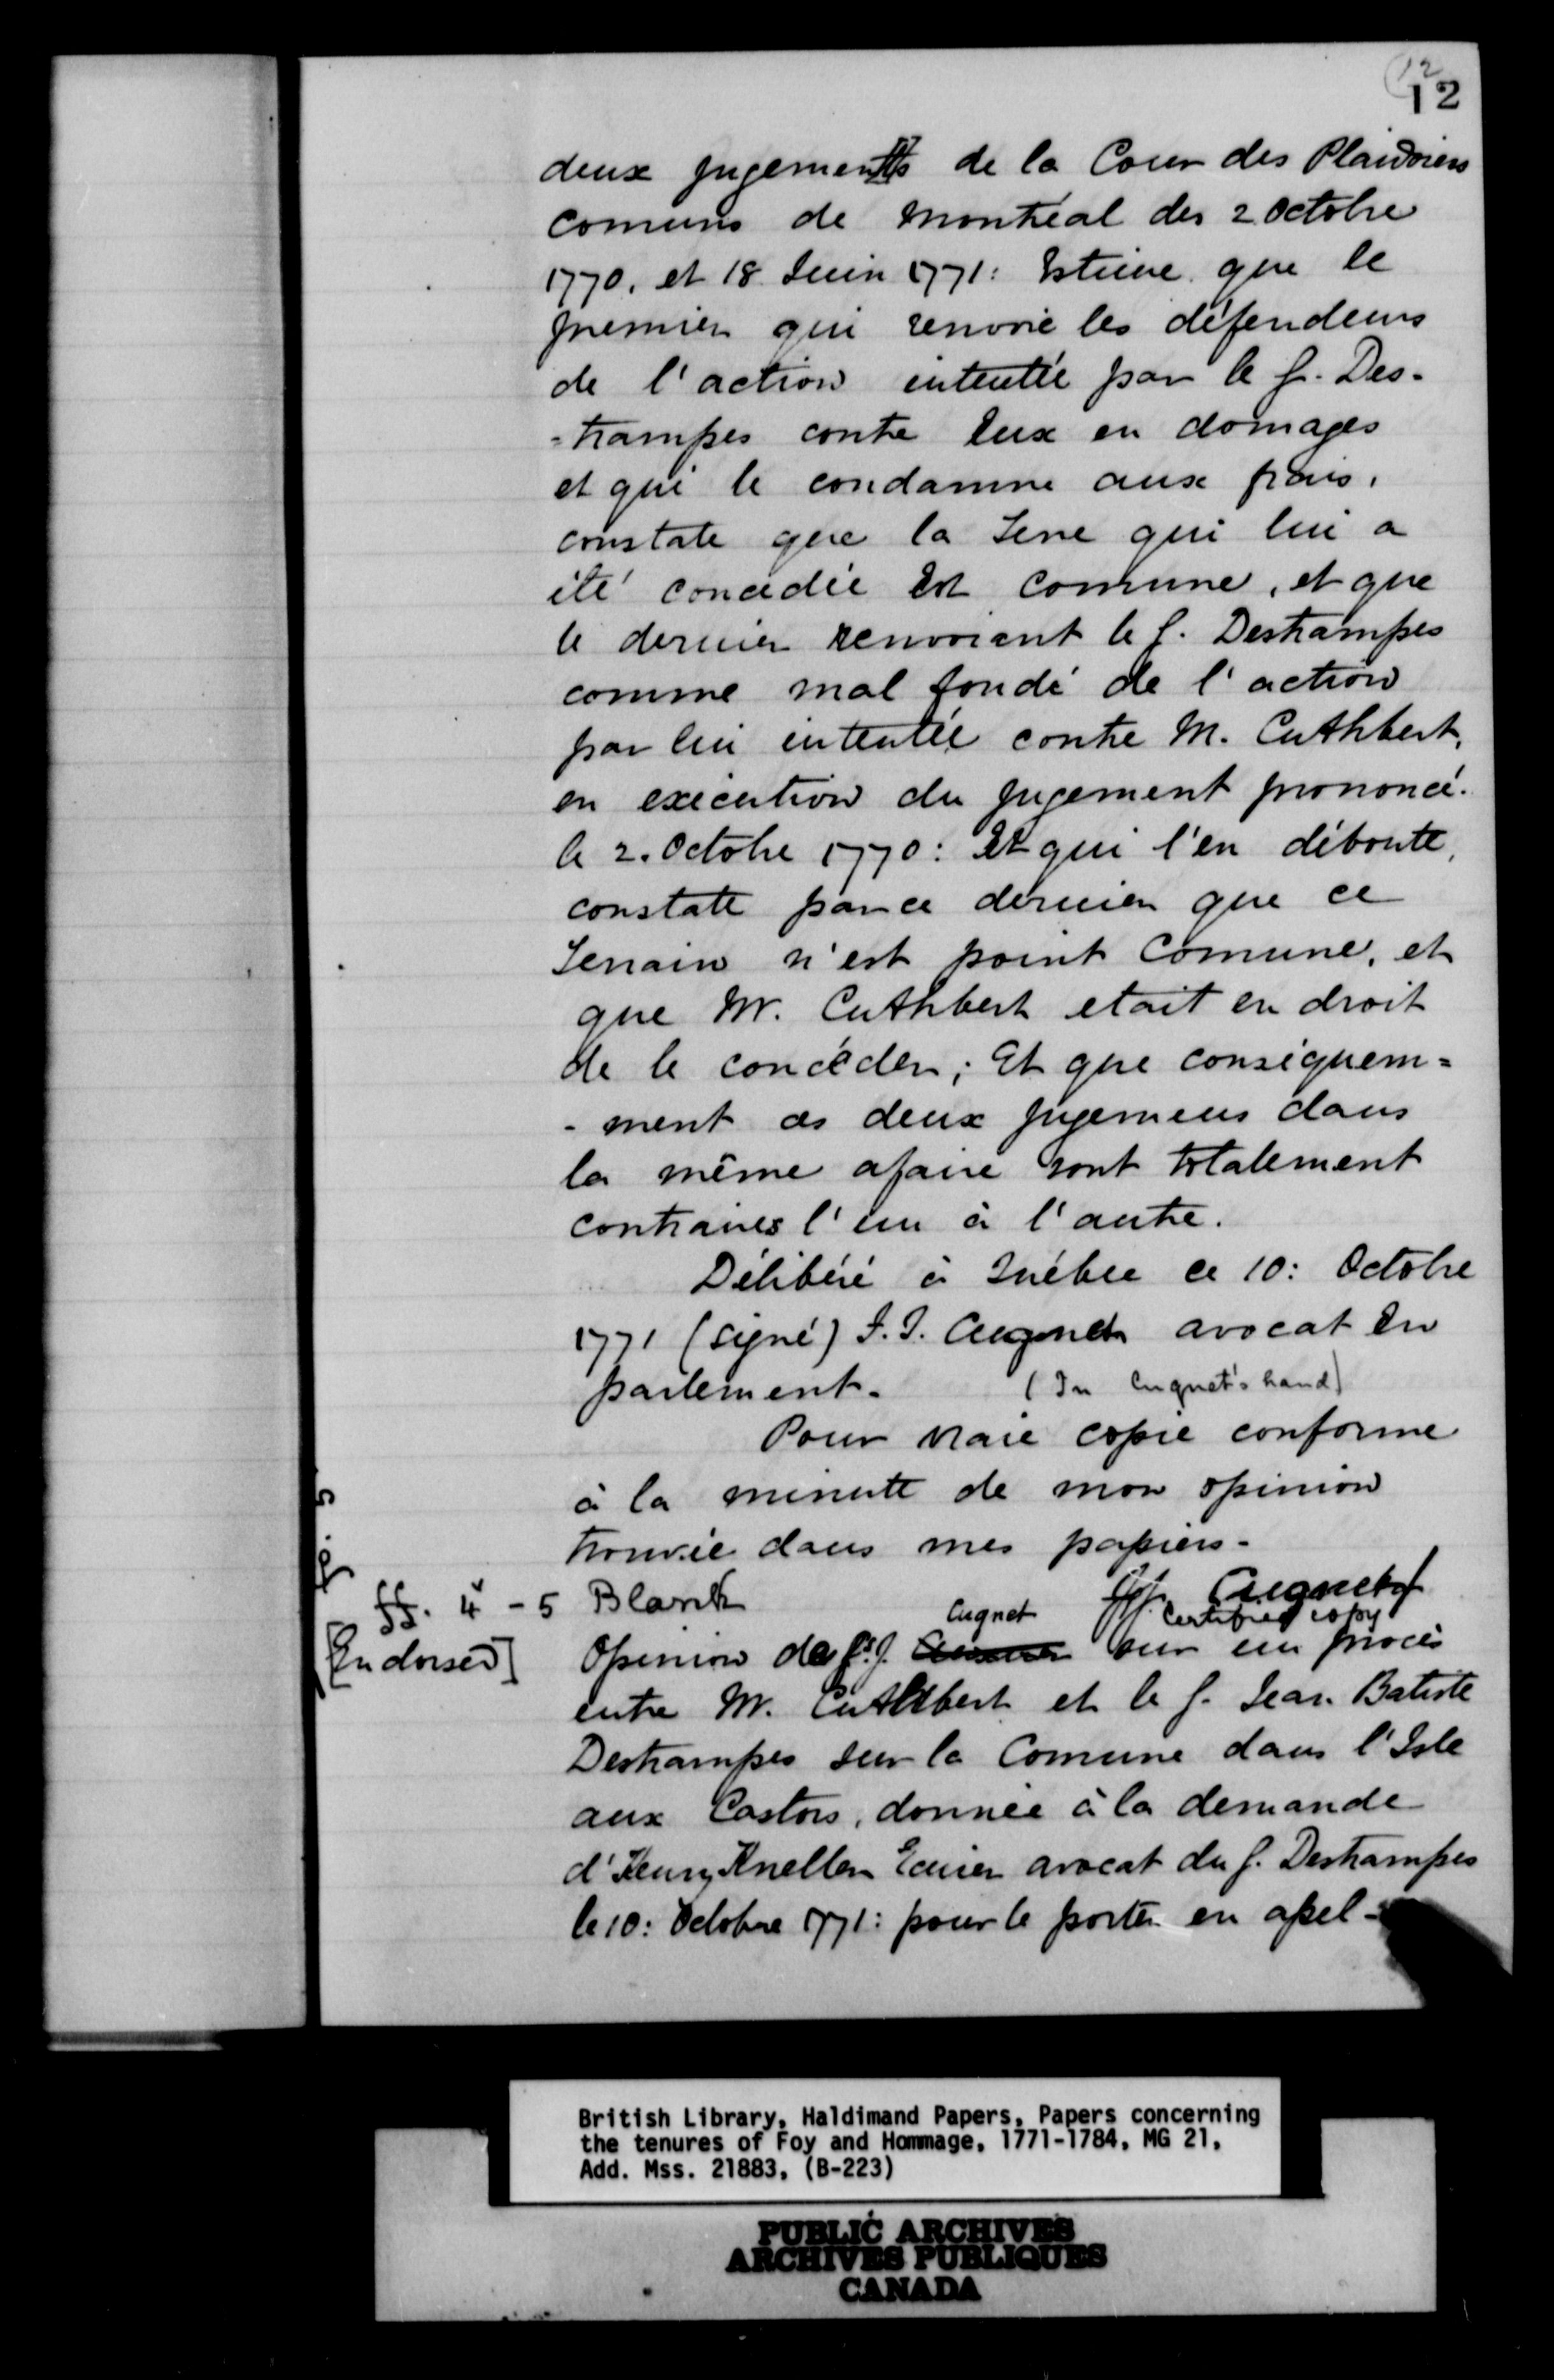 12
12
deux jugements de la Cour des Plaidoiers
comuns de Montréal des 2 Octobre
1770, et 18 Juin 1771: Estime que le
premier qui renvoie les défendeurs
de l'action intentée par le S. Des-
-trampes contre Eux en domages
et qui le condamne aux frais,
constate que la Terre qui lui a
été concedée Est Comune, et que
le dernier renvoiant le S. Destrampes
comme mal fondé de l'action
par lui intentée contre M. Cuthbert,
en exécution du jugement prononcé.
le 2. Octobre 1770: Et qui l'en déboute,
constate par ce dernier que ce
Terrain n'est point Comune, et
que M. Cuthbert etait en droit
de le concéder; Et que conséquem=
-ment ces deux jugemens dans
la même afaire sont totalement
contraires l'un à l'autre.
Délibéré à Québec ce 10: Octobre
1771 (signé) F. J. Cugnet avocat En
parlement. (In Cugnet's hand)
Pour vraie copie conforme
à la minute de mon opinion
trouvée dans mes papiers.
ff. 4 - 5 Blank Cugnet
Cugnet Certified copy
[Endorsed] Opinion de f. J. sur un procès
entre M. Cuthbert et le S. Jean Batiste
Destrampes sur la Comune dans l'Isle
aux Castors, donnée à la demande
d'Henry Kneller Ecuier avocat du S. Destrampes
le 10: Octobre 1771: pour le porter en apel -
p. 5
British Library, Haldimand Papers, Papers concerning
the tenures of Foy and Hommage, 1771-1784, MG 21,
Add. Mss. 21883, (B-223)
PUBLIC ARCHIVES
ARCHIVES PUBLIQUES
CANADA